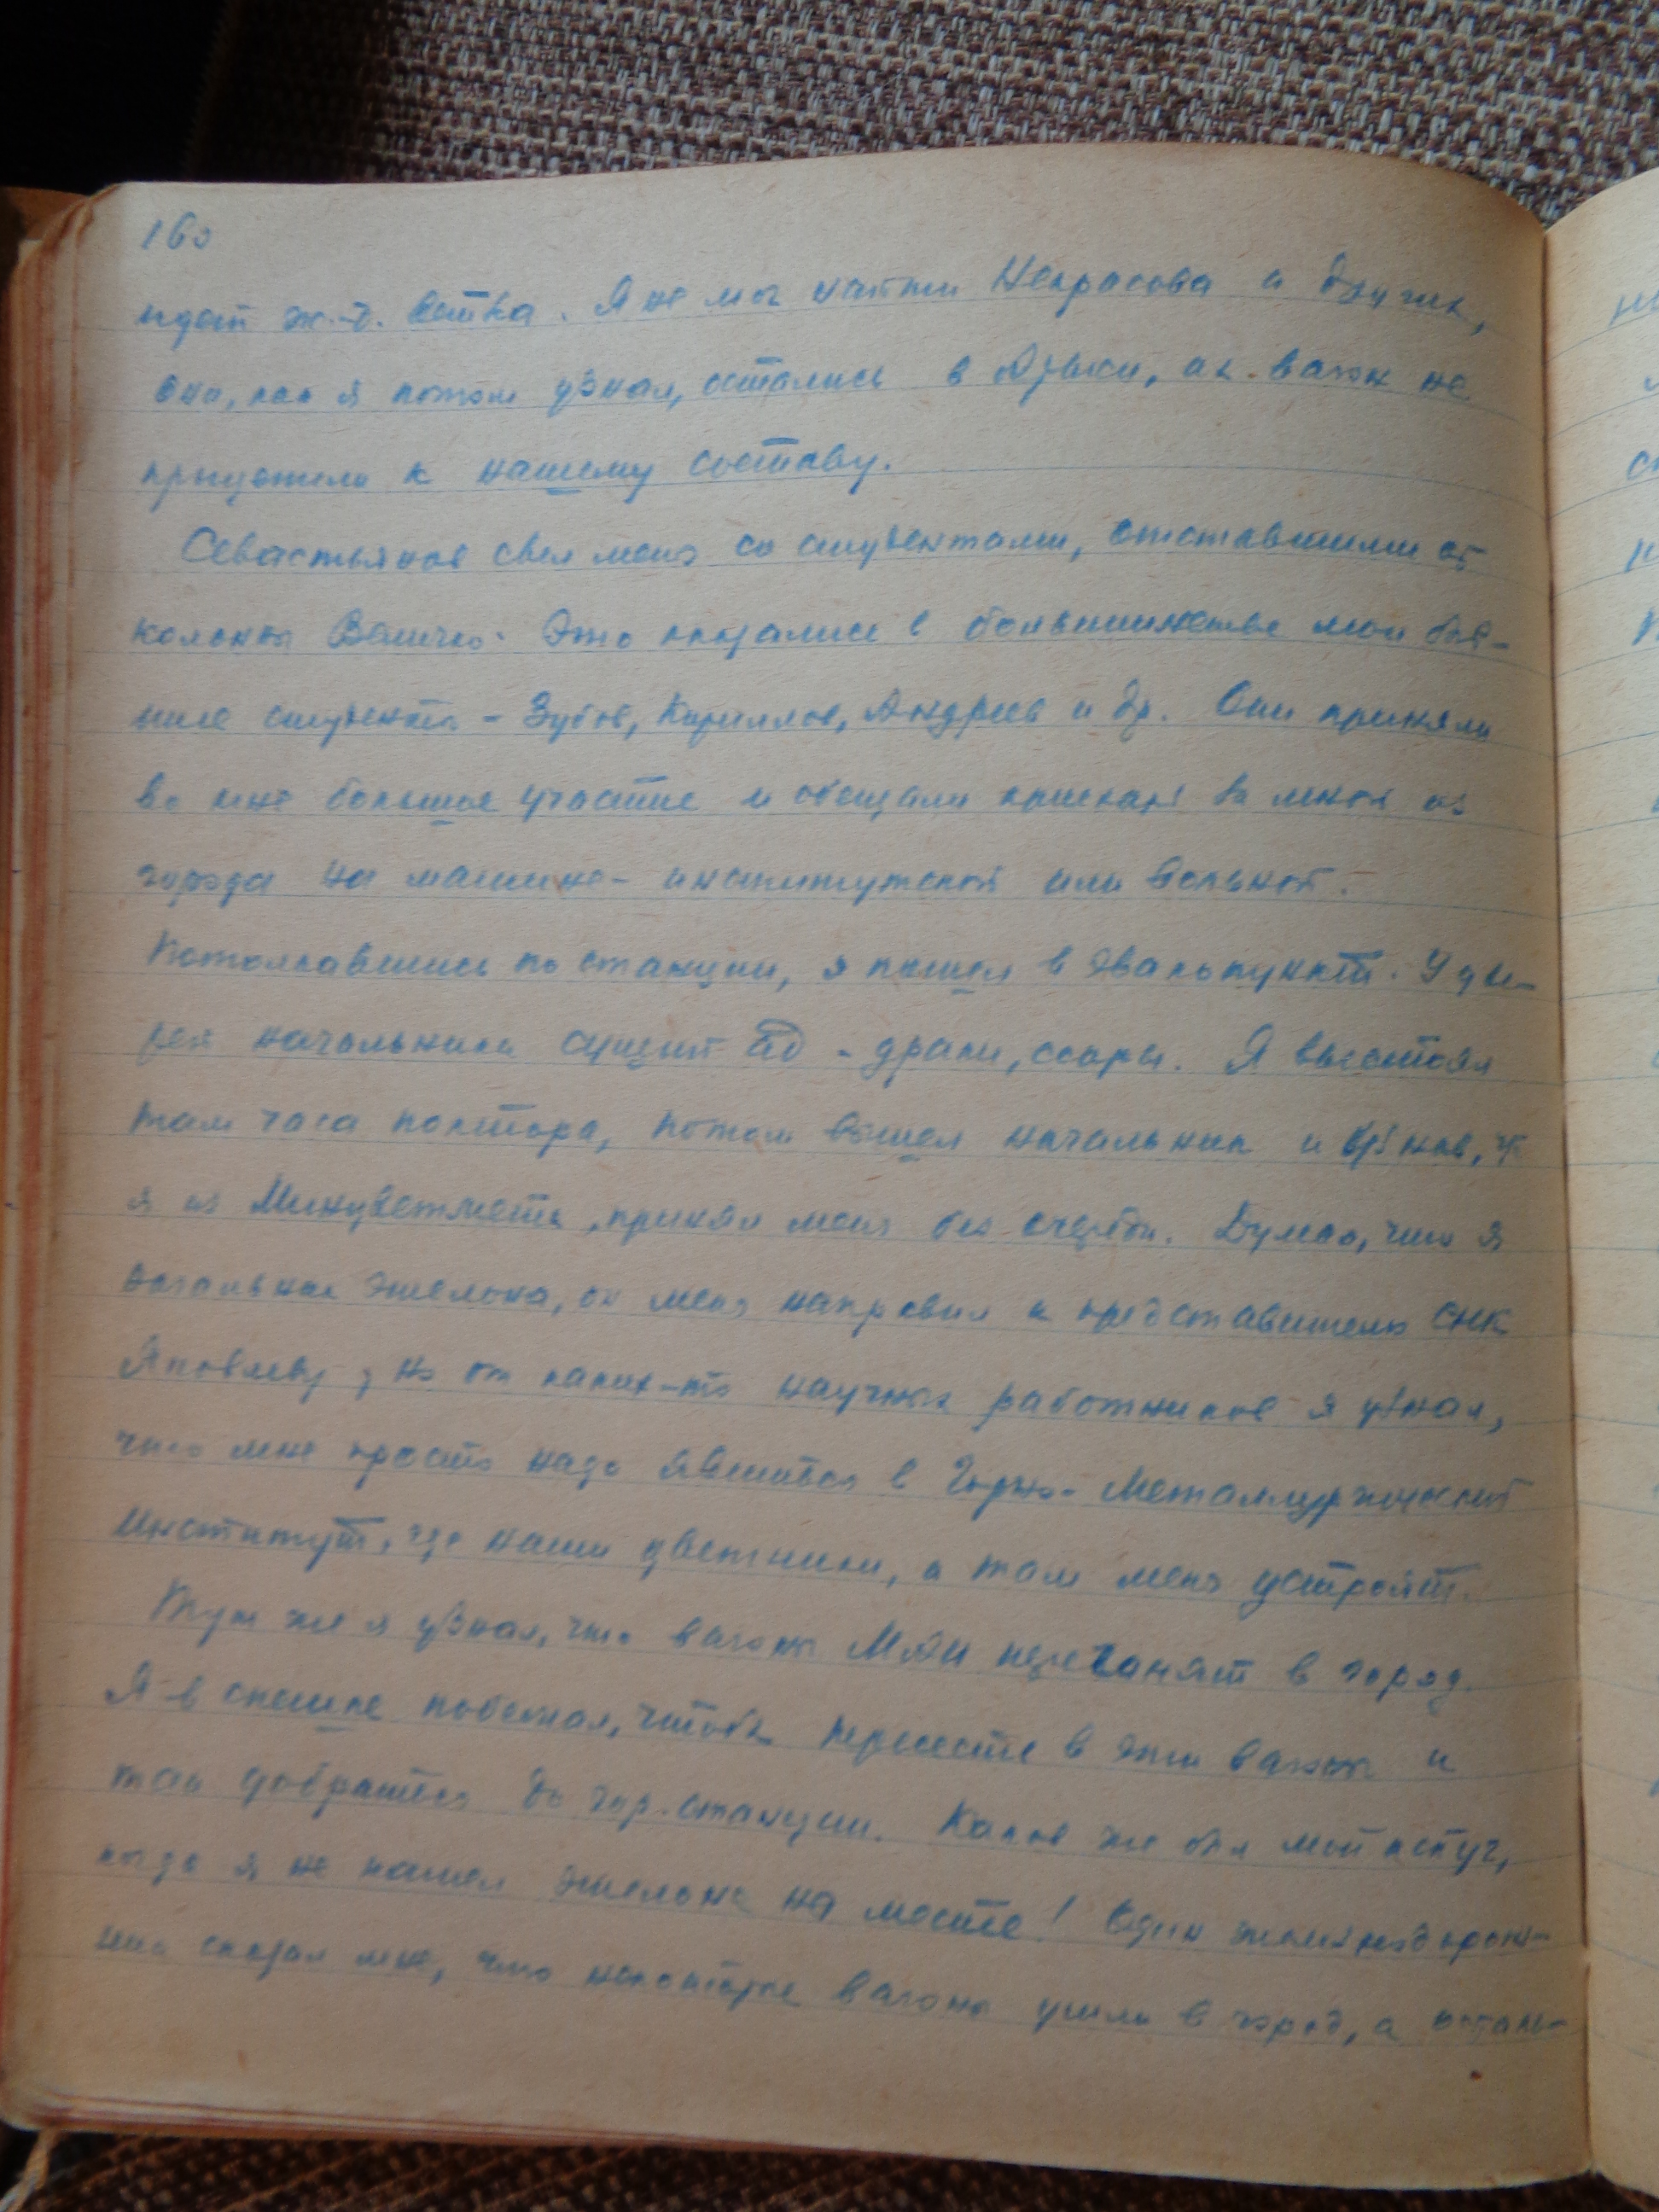 160
идет ж.-д. ветка. Я не мог найти Некрасова и других,
они, как я потом узнал, остались в Арыси, их вагон не
прицепили к нашему составу.
Севастьянов свел меня со студентами, отставшими от
колонны Величко. Это оказались в большинстве мои быв-
шие студенты - Зубов, Кириллов, Андреев и др. Они приняли
во мне большое участие и обещали приехать за мной из
города на машине - институтской или вольной.
Потолкавшись по станции, я пошел в эвакопункт. У две-
рей начальника сущий ад - драки, ссоры. Я выстоял
там часа полтора, потом вышел начальник и узнав, что
я из Минцветмета, принял меня без очереди. Думая, что я
начальник эшелона, он меня направил к представителю СНК
Яковлеву, но от каких-то научных работников я узнал,
что мне просто надо явиться в Горно-Металлургический
Институт, где наши цветники, и там меня устроят.
Тут же я узнал, что вагоны МАИ перегонят в город.
Я в спешке побежал, чтобы перенести в эти вагоны и
так добраться до гор. станции. Каков же был мой испуг,
когда я не нашел эшелона на месте! Один железнодорож-
ник сказал мне, что некоторые вагоны ушли в город, а осталь-